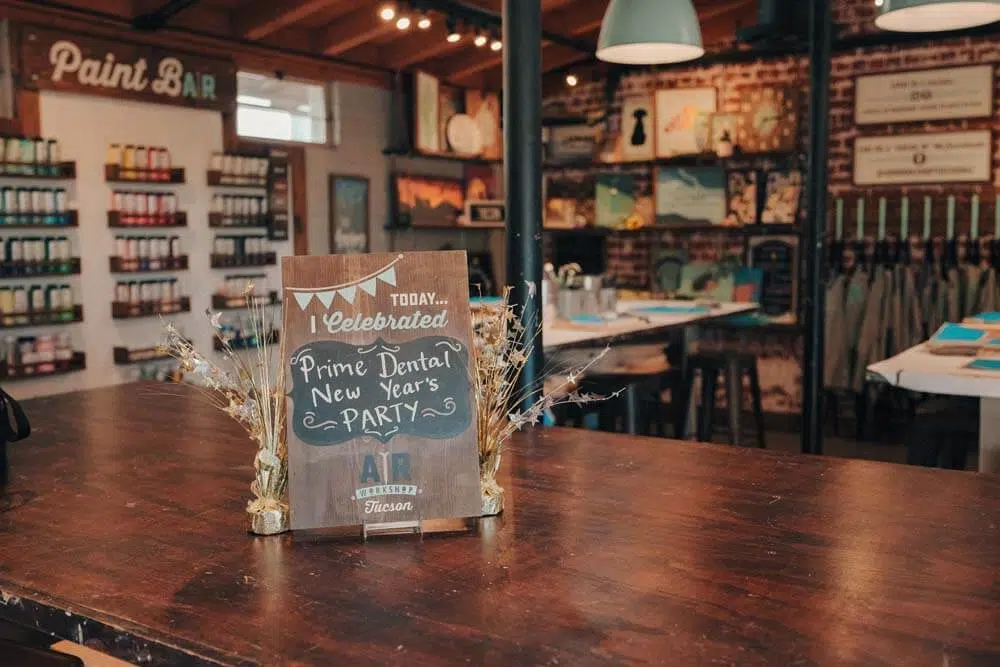 Paint BAR
TODAY...
I Celebrated
Prime Dental
New Year's
PARTY
AR
WORKSHOP
Tucson